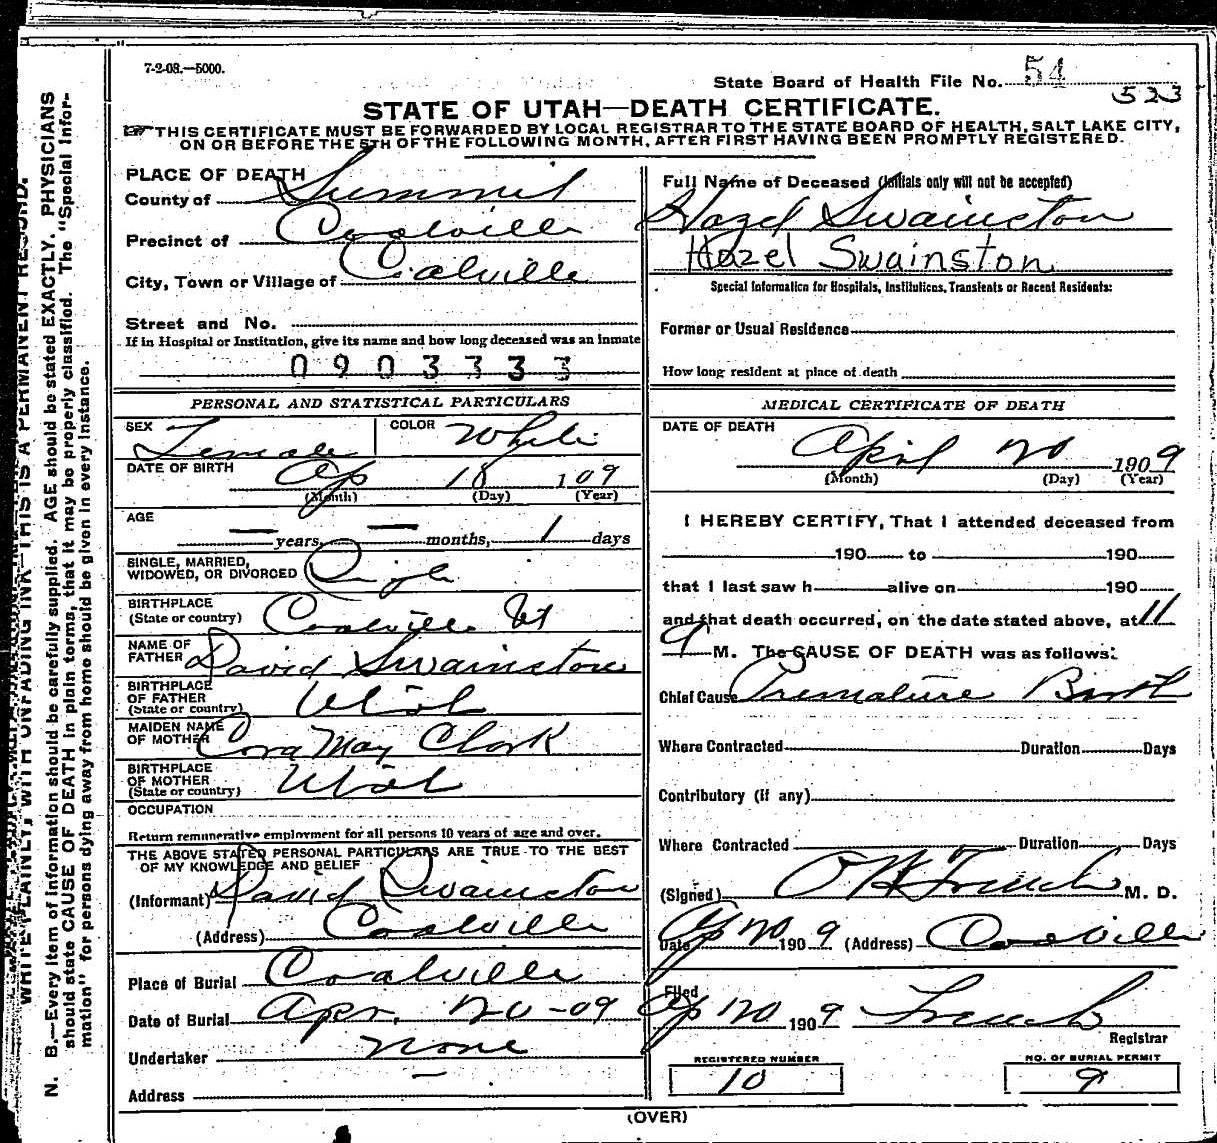 7-2-08.—5000.
State Board of Health File No. 54
523
STATE OF UTAH—DEATH CERTIFICATE.
THIS CERTIFICATE MUST BE FORWARDED BY LOCAL REGISTRAR TO THE STATE BOARD OF HEALTH, SALT LAKE CITY,
ON OR BEFORE THE 5TH OF THE FOLLOWING MONTH, AFTER FIRST HAVING BEEN PROMPTLY REGISTERED.
PLACE OF DEATH
County of Summit
Precinct of Coalville
City, Town or Village of Coalville
Street and No.
If in Hospital or Institution, give its name and how long deceased was an inmate
0903333
Full Name of Deceased (Initials only will not be accepted)
Hazel Swainston
Hazel Swainston
Special Information for Hospitals, Institutions, Transients or Recent Residents:
Former or Usual Residence
How long resident at place of death
PERSONAL AND STATISTICAL PARTICULARS
SEX Female COLOR White
DATE OF BIRTH Ap 18 109
(Month) (Day) (Year)
AGE
— years, — months, 1 days
SINGLE, MARRIED,
WIDOWED, OR DIVORCED Single
BIRTHPLACE
(State or country) Coalville Ut
NAME OF
FATHER David Swainston
BIRTHPLACE
OF FATHER
(State or country) Utah
MAIDEN NAME
OF MOTHER Cora May Clark
BIRTHPLACE
OF MOTHER
(State or country) Utah
OCCUPATION
Return remunerative employment for all persons 10 years of age and over.
THE ABOVE STATED PERSONAL PARTICULARS ARE TRUE TO THE BEST
OF MY KNOWLEDGE AND BELIEF
(Informant) David Swainston
(Address) Coalville
Place of Burial Coalville
Date of Burial Apr. 20-09
Undertaker none
Address —
MEDICAL CERTIFICATE OF DEATH
DATE OF DEATH
April 20 1909
(Month) (Day) (Year)
I HEREBY CERTIFY, That I attended deceased from
190 to 190
that I last saw h alive on 190
and that death occurred, on the date stated above, at 11
M. The CAUSE OF DEATH was as follows:
Chief Cause Premature Birth
Where Contracted Duration Days
Contributory (if any)
Where Contracted Duration Days
(Signed) French M. D.
Date Ap 20 1909 (Address) Coalville
Filed Ap 20 1909 French
Registrar
REGISTERED NUMBER
10
NO. OF BURIAL PERMIT
9
(OVER)
WRITE PLAINLY, WITH UNFADING INK—THIS IS A PERMANENT RECORD.
N. B.—Every item of information should be carefully supplied. AGE should be stated EXACTLY. PHYSICIANS
should state CAUSE OF DEATH in plain terms, that it may be properly classified. The "Special Infor-
mation" for persons dying away from home should be given in every instance.